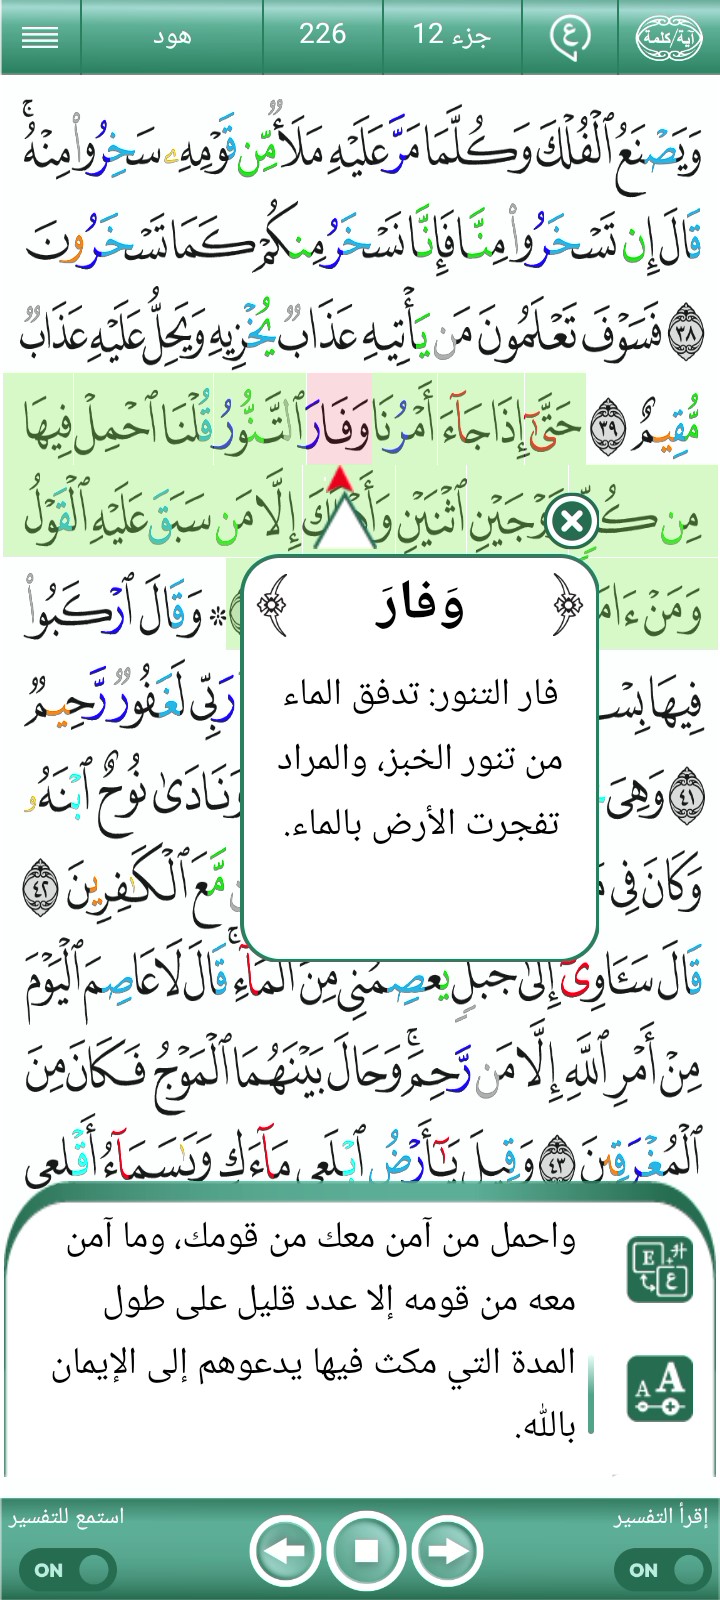 آية/كلمة
ع
جزء 12
226
هود
وَيَصْنَعُ ٱلْفُلْكَ وَكُلَّمَا مَرَّ عَلَيْهِ مَلَأٌ مِّن قَوْمِهِۦ سَخِرُوا۟ مِنْهُ ۚ
قَالَ إِن تَسْخَرُوا۟ مِنَّا فَإِنَّا نَسْخَرُ مِنكُمْ كَمَا تَسْخَرُونَ
٣٨ فَسَوْفَ تَعْلَمُونَ مَن يَأْتِيهِ عَذَابٌ يُخْزِيهِ وَيَحِلُّ عَلَيْهِ عَذَابٌ
مُّقِيمٌ ٣٩ حَتَّىٰٓ إِذَا جَآءَ أَمْرُنَا وَفَارَ ٱلتَّنُّورُ قُلْنَا ٱحْمِلْ فِيهَا
مِن ٱثْنَيْنِ إِلَّا مَن سَبَقَ عَلَيْهِ ٱلْقَوْلُ
وَمَنْ * وَقَالَ ٱرْكَبُوا۟
فِيهَا رَبِّى لَغَفُورٌ رَّحِيمٌ
٤١ وَهِىَ وَنَادَىٰ نُوحٌ ٱبْنَهُۥ
وَكَانَ فِى مَّعَ ٱلْكَـٰفِرِينَ ٤٢
قَالَ سَـَٔاوِىٓ إِلَىٰ جَبَلٍ يَعْصِمُنِى مِنَ ٱلْمَآءِ ۚ قَالَ لَا عَاصِمَ ٱلْيَوْمَ
مِنْ أَمْرِ ٱللَّهِ إِلَّا مَن رَّحِمَ ۚ وَحَالَ بَيْنَهُمَا ٱلْمَوْجُ فَكَانَ مِنَ
ٱلْمُغْرَقِينَ ٤٣ وَقِيلَ يَـٰٓأَرْضُ ٱبْلَعِى مَآءَكِ وَيَـٰسَمَآءُ أَقْلِعِى
وَفارَ
فار التنور: تدفق الماء
من تنور الخبز، والمراد
تفجرت الأرض بالماء.
واحمل من آمن معك من قومك، وما آمن
معه من قومه إلا عدد قليل على طول
المدة التي مكث فيها يدعوهم إلى الإيمان
بالله.
E ع
A A
إقرأ التفسير
استمع للتفسير
ON
ON